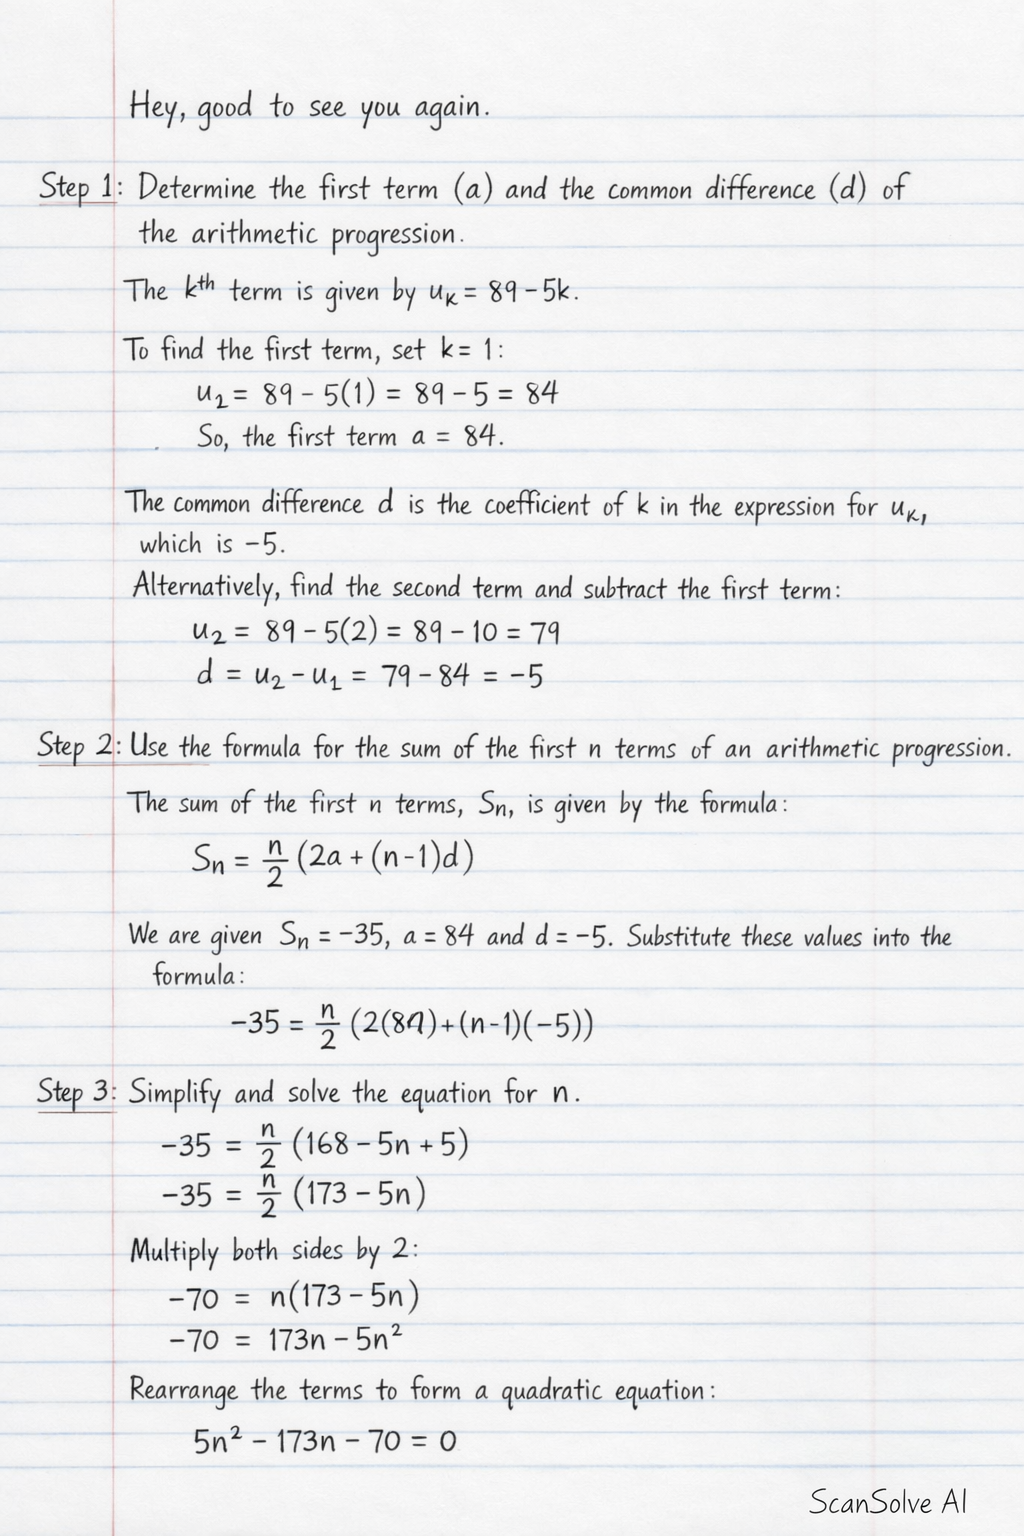 Hey, good to see you again.
Step 1: Determine the first term (a) and the common difference (d) of
the arithmetic progression.
The kᵗʰ term is given by u_K = 89 - 5k.
To find the first term, set k = 1:
u₂ = 89 - 5(1) = 89 - 5 = 84
So, the first term a = 84.
The common difference d is the coefficient of k in the expression for u_K,
which is -5.
Alternatively, find the second term and subtract the first term:
u₂ = 89 - 5(2) = 89 - 10 = 79
d = u₂ - u₁ = 79 - 84 = -5
Step 2: Use the formula for the sum of the first n terms of an arithmetic progression.
The sum of the first n terms, Sn, is given by the formula:
Sn = n/2 (2a + (n-1)d)
We are given Sn = -35, a = 84 and d = -5. Substitute these values into the
formula:
-35 = n/2 (2(84) + (n-1)(-5))
Step 3: Simplify and solve the equation for n.
-35 = n/2 (168 - 5n + 5)
-35 = n/2 (173 - 5n)
Multiply both sides by 2:
-70 = n(173 - 5n)
-70 = 173n - 5n²
Rearrange the terms to form a quadratic equation:
5n² - 173n - 70 = 0
ScanSolve AI